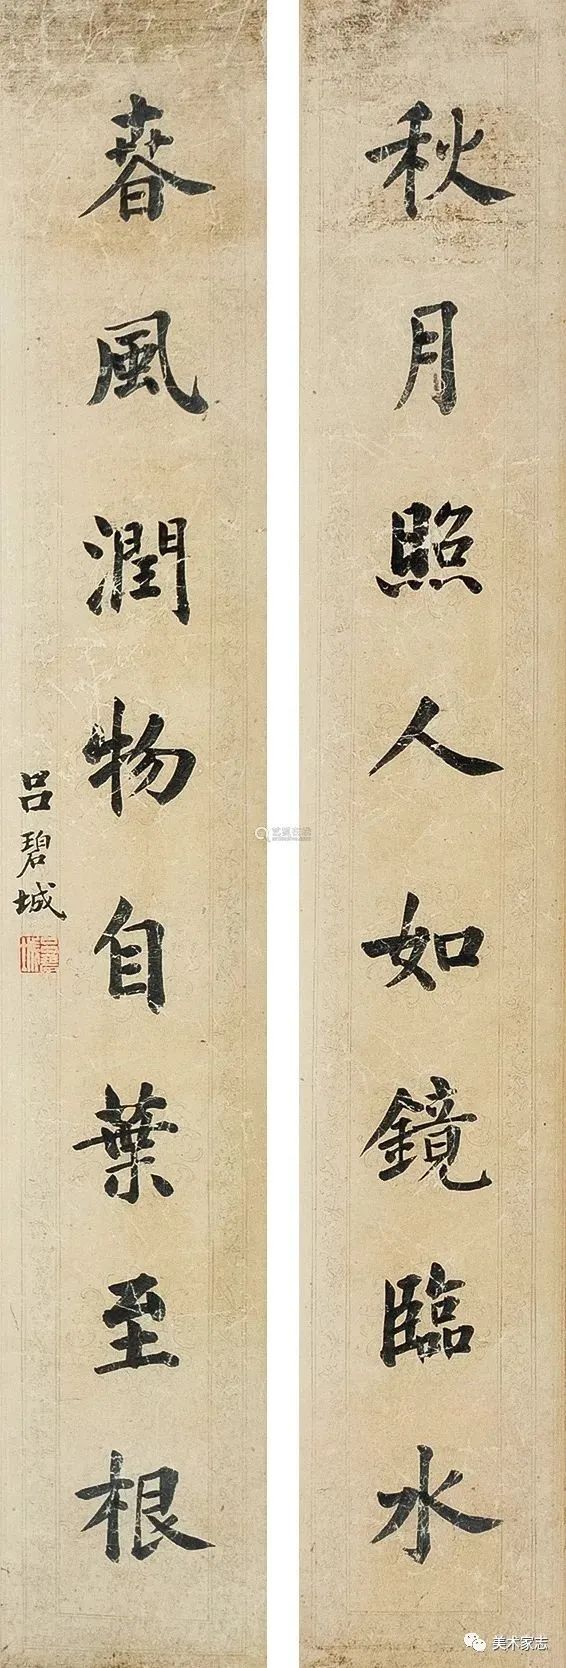 秋月照人如鏡臨水
春風潤物自葉至根
吕碧城
美术家志